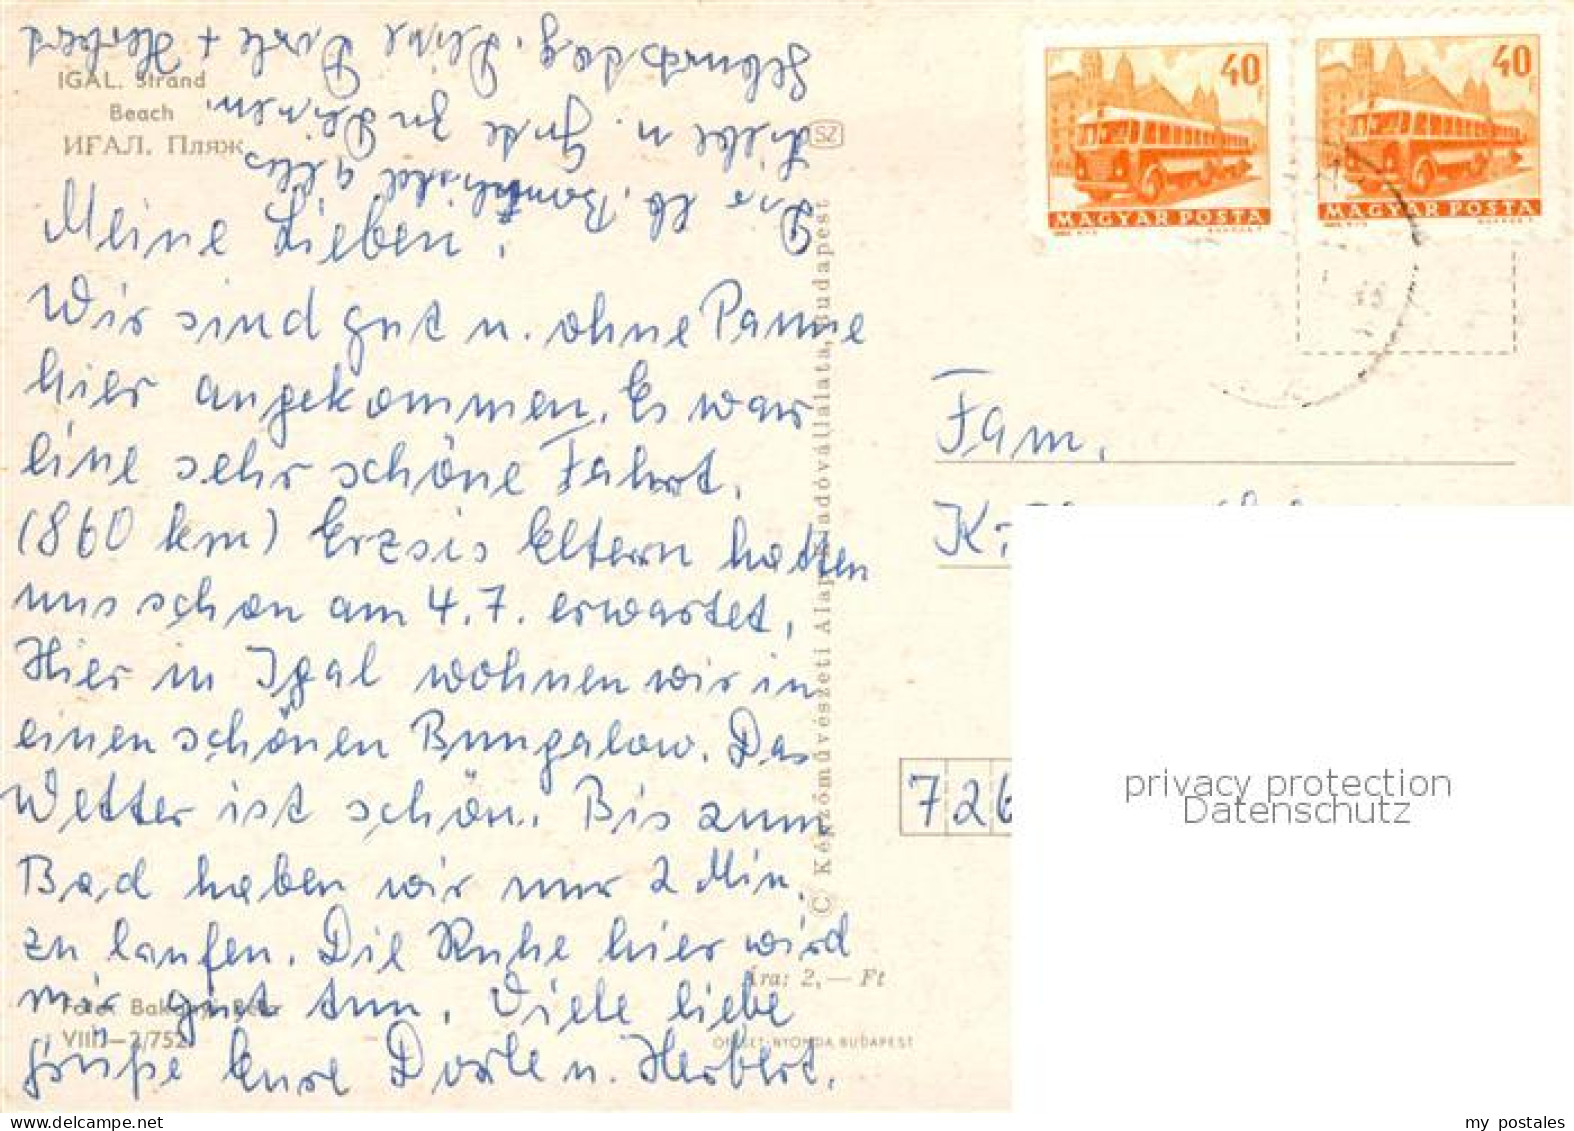 IGAL. Strand
Beach
ИГАЛ. Пляж
Meine Lieben!
Wir sind gut u. ohne Panne
hier angekommen. Es war
eine sehr schöne Fahrt.
(860 km) Erzsis Eltern hatten
uns schon am 4.7. erwartet,
Hier in Igal wohnen wir in
einen schönen Bungalow. Das
Wetter ist schön. Bis zum
Bad haben wir nur 2 Min.
zu laufen. Die Ruhe hier wird
mir gut tun. Viele liebe
Grüße Eure Dorle u. Herbert.
Dir lb. alles
Liebe u. Gute zu Deinem
Geburtsdag. Deine Dorle + Herbert
VIII—2/752
SZ
© Képzőművészeti Alap Kiadóvállalata, Budapest
Ára: 2,— Ft
OFFSET-NYOMDA, BUDAPEST
40
MAGYAR POSTA
40
MAGYAR POSTA
Fam.
726
privacy protection
Datenschutz
my postales